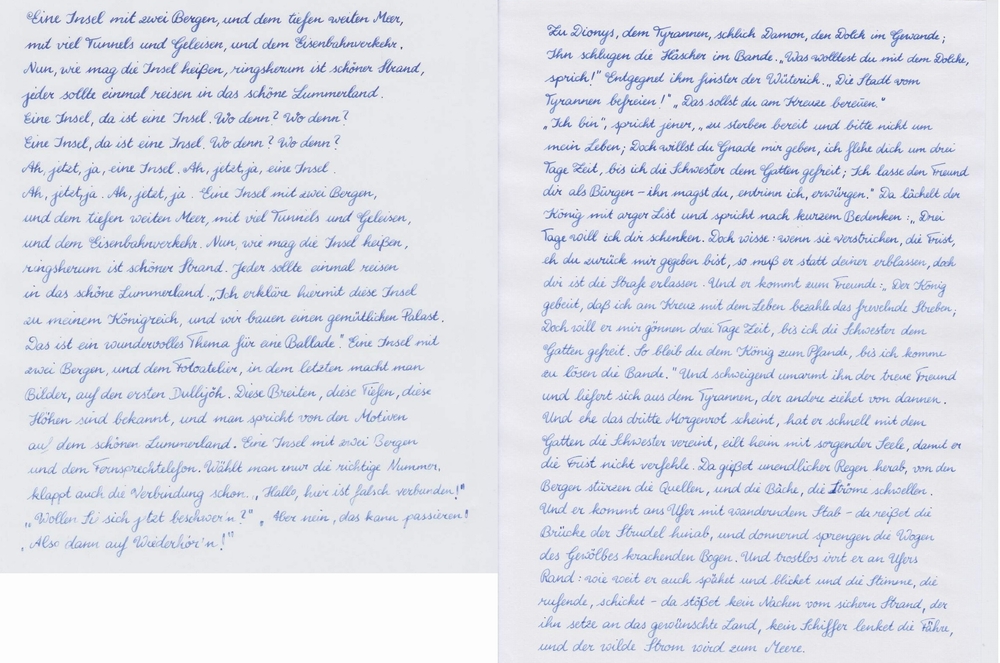 Eine Insel mit zwei Bergen, und dem tiefen weiten Meer,
mit viel Tunnels und Geleisen, und dem Eisenbahnverkehr.
Nun, wie mag die Insel heißen, ringsherum ist schöner Strand,
jeder sollte einmal reisen in das schöne Lummerland.
Eine Insel, da ist eine Insel. Wo denn? Wo denn?
Eine Insel, da ist eine Insel. Wo denn? Wo denn?
Ah, jetzt, ja, eine Insel. Ah, jetzt, ja, eine Insel.
Ah, jetzt, ja. Ah, jetzt, ja. Eine Insel mit zwei Bergen,
und dem tiefen weiten Meer, mit viel Tunnels und Geleisen,
und dem Eisenbahnverkehr. Nun, wie mag die Insel heißen,
ringsherum ist schöner Strand. Jeder sollte einmal reisen
in das schöne Lummerland. „Ich erkläre hiermit diese Insel
zu meinem Königreich, und wir bauen einen gemütlichen Palast.
Das ist ein wundervolles Thema für eine Ballade." Eine Insel mit
zwei Bergen, und dem Fotoatelier, in dem letzten macht man
Bilder, auf den ersten Dullijöh. Diese Breiten, diese Tiefen, diese
Höhen sind bekannt, und man spricht von den Motiven
auf dem schönen Lummerland. Eine Insel mit zwei Bergen
und dem Fernsprechtelefon. Wählt man nur die richtige Nummer,
klappt auch die Verbindung schon. „Hallo, hier ist falsch verbunden!"
„Wollen Se sich jetzt beschwer'n?" „Aber nein, das kann passieren!
„Also dann auf Wiederhör'n!"
Zu Dionys, dem Tyrannen, schlich Damon, den Dolch im Gewande;
Ihn schlugen die Häscher im Bande. „Was wolltest du mit dem Dolche,
sprich!" Entgegnet ihm finster der Wüterich. „Die Stadt vom
Tyrannen befreien!" „Das sollst du am Kreuze bereuen."
„Ich bin", spricht jener, „zu sterben bereit und bitte nicht um
mein Leben; Doch willst du Gnade mir geben, ich flehe dich um drei
Tage Zeit, bis ich die Schwester dem Gatten gefreit; Ich lasse den Freund
dir als Bürgen – ihn magst du, entrinn ich, erwürgen." Da lächelt der
König mit arger List und spricht nach kurzem Bedenken: „Drei
Tage will ich dir schenken. Doch wisse: wenn sie verstrichen, die Frist,
eh du zurück mir gegeben bist, so muß er statt deiner erblassen, doch
dir ist die Strafe erlassen. Und er kommt zum Freunde: „Der König
gebeut, daß ich am Kreuz mit dem Leben bezahle das frevelnde Streben;
Doch will er mir gönnen drei Tage Zeit, bis ich die Schwester dem
Gatten gefreit. So bleib du dem König zum Pfande, bis ich komme
zu lösen die Bande." Und schweigend umarmt ihn der treue Freund
und liefert sich aus dem Tyrannen, der andere ziehet von dannen.
Und ehe das dritte Morgenrot scheint, hat er schnell mit dem
Gatten die Schwester vereint, eilt heim mit sorgender Seele, damit er
die Frist nicht verfehle. Da gießet unendlicher Regen herab, von den
Bergen stürzen die Quellen, und die Bäche, die Ströme schwellen.
Und er kommt ans Ufer mit wanderndem Stab – da reißet die
Brücke der Strudel hinab, und donnernd sprengen die Wogen
des Gewölbes krachenden Bogen. Und trostlos irrt er an Ufers
Rand: wie weit er auch spähet und blicket und die Stimme, die
rufende, schicket – da stößet kein Nachen vom sichern Strand, der
ihn setze an das gewünschte Land, kein Schiffer lenket die Fähre,
und der wilde Strom wird zum Meere.